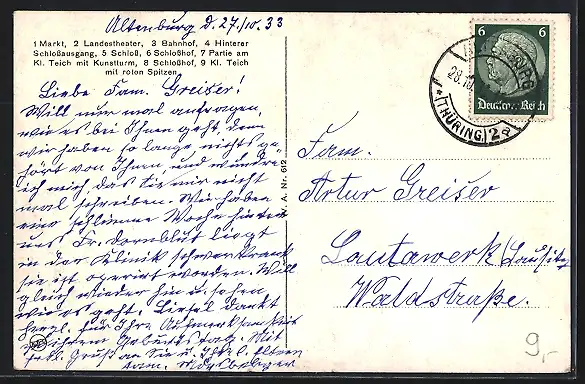 Altenburg d. 27./10. 33
1 Markt, 2 Landestheater, 3 Bahnhof, 4 Hinterer
Schloßausgang, 5 Schloß, 6 Schloßhof, 7 Partie am
Kl. Teich mit Kunstturm, 8 Schloßhof, 9 Kl. Teich
mit roten Spitzen
Liebe Fam. Greiser!
Will nur mal anfragen,
wie es bei Ihnen geht, denn
wir haben so lange nichts ge-
hört von Ihnen und wundre
ich mich das Sie mir nicht
mal schreiben. Wir haben
eine schlimme Woche hinter
uns Fr. Dornblut liegt
in der Klinik schwer krank
sie ist operiert worden. Will
gleich wieder hin u. sehen
wie es geht. Liesel dankt
herzl. für Ihre Aufmerksamkeit
zu ihrem Geburtstag. Mit
herzl. Gruß an Sie u. Ihre l. Eltern
Fam.
A. Nr. 612
6 6
Deutsches Reich
28.10.
(THÜRING.) 2 a
Fam.
Artur Greiser
Lautawerk (Lausitz
Waldstraße.
9,-